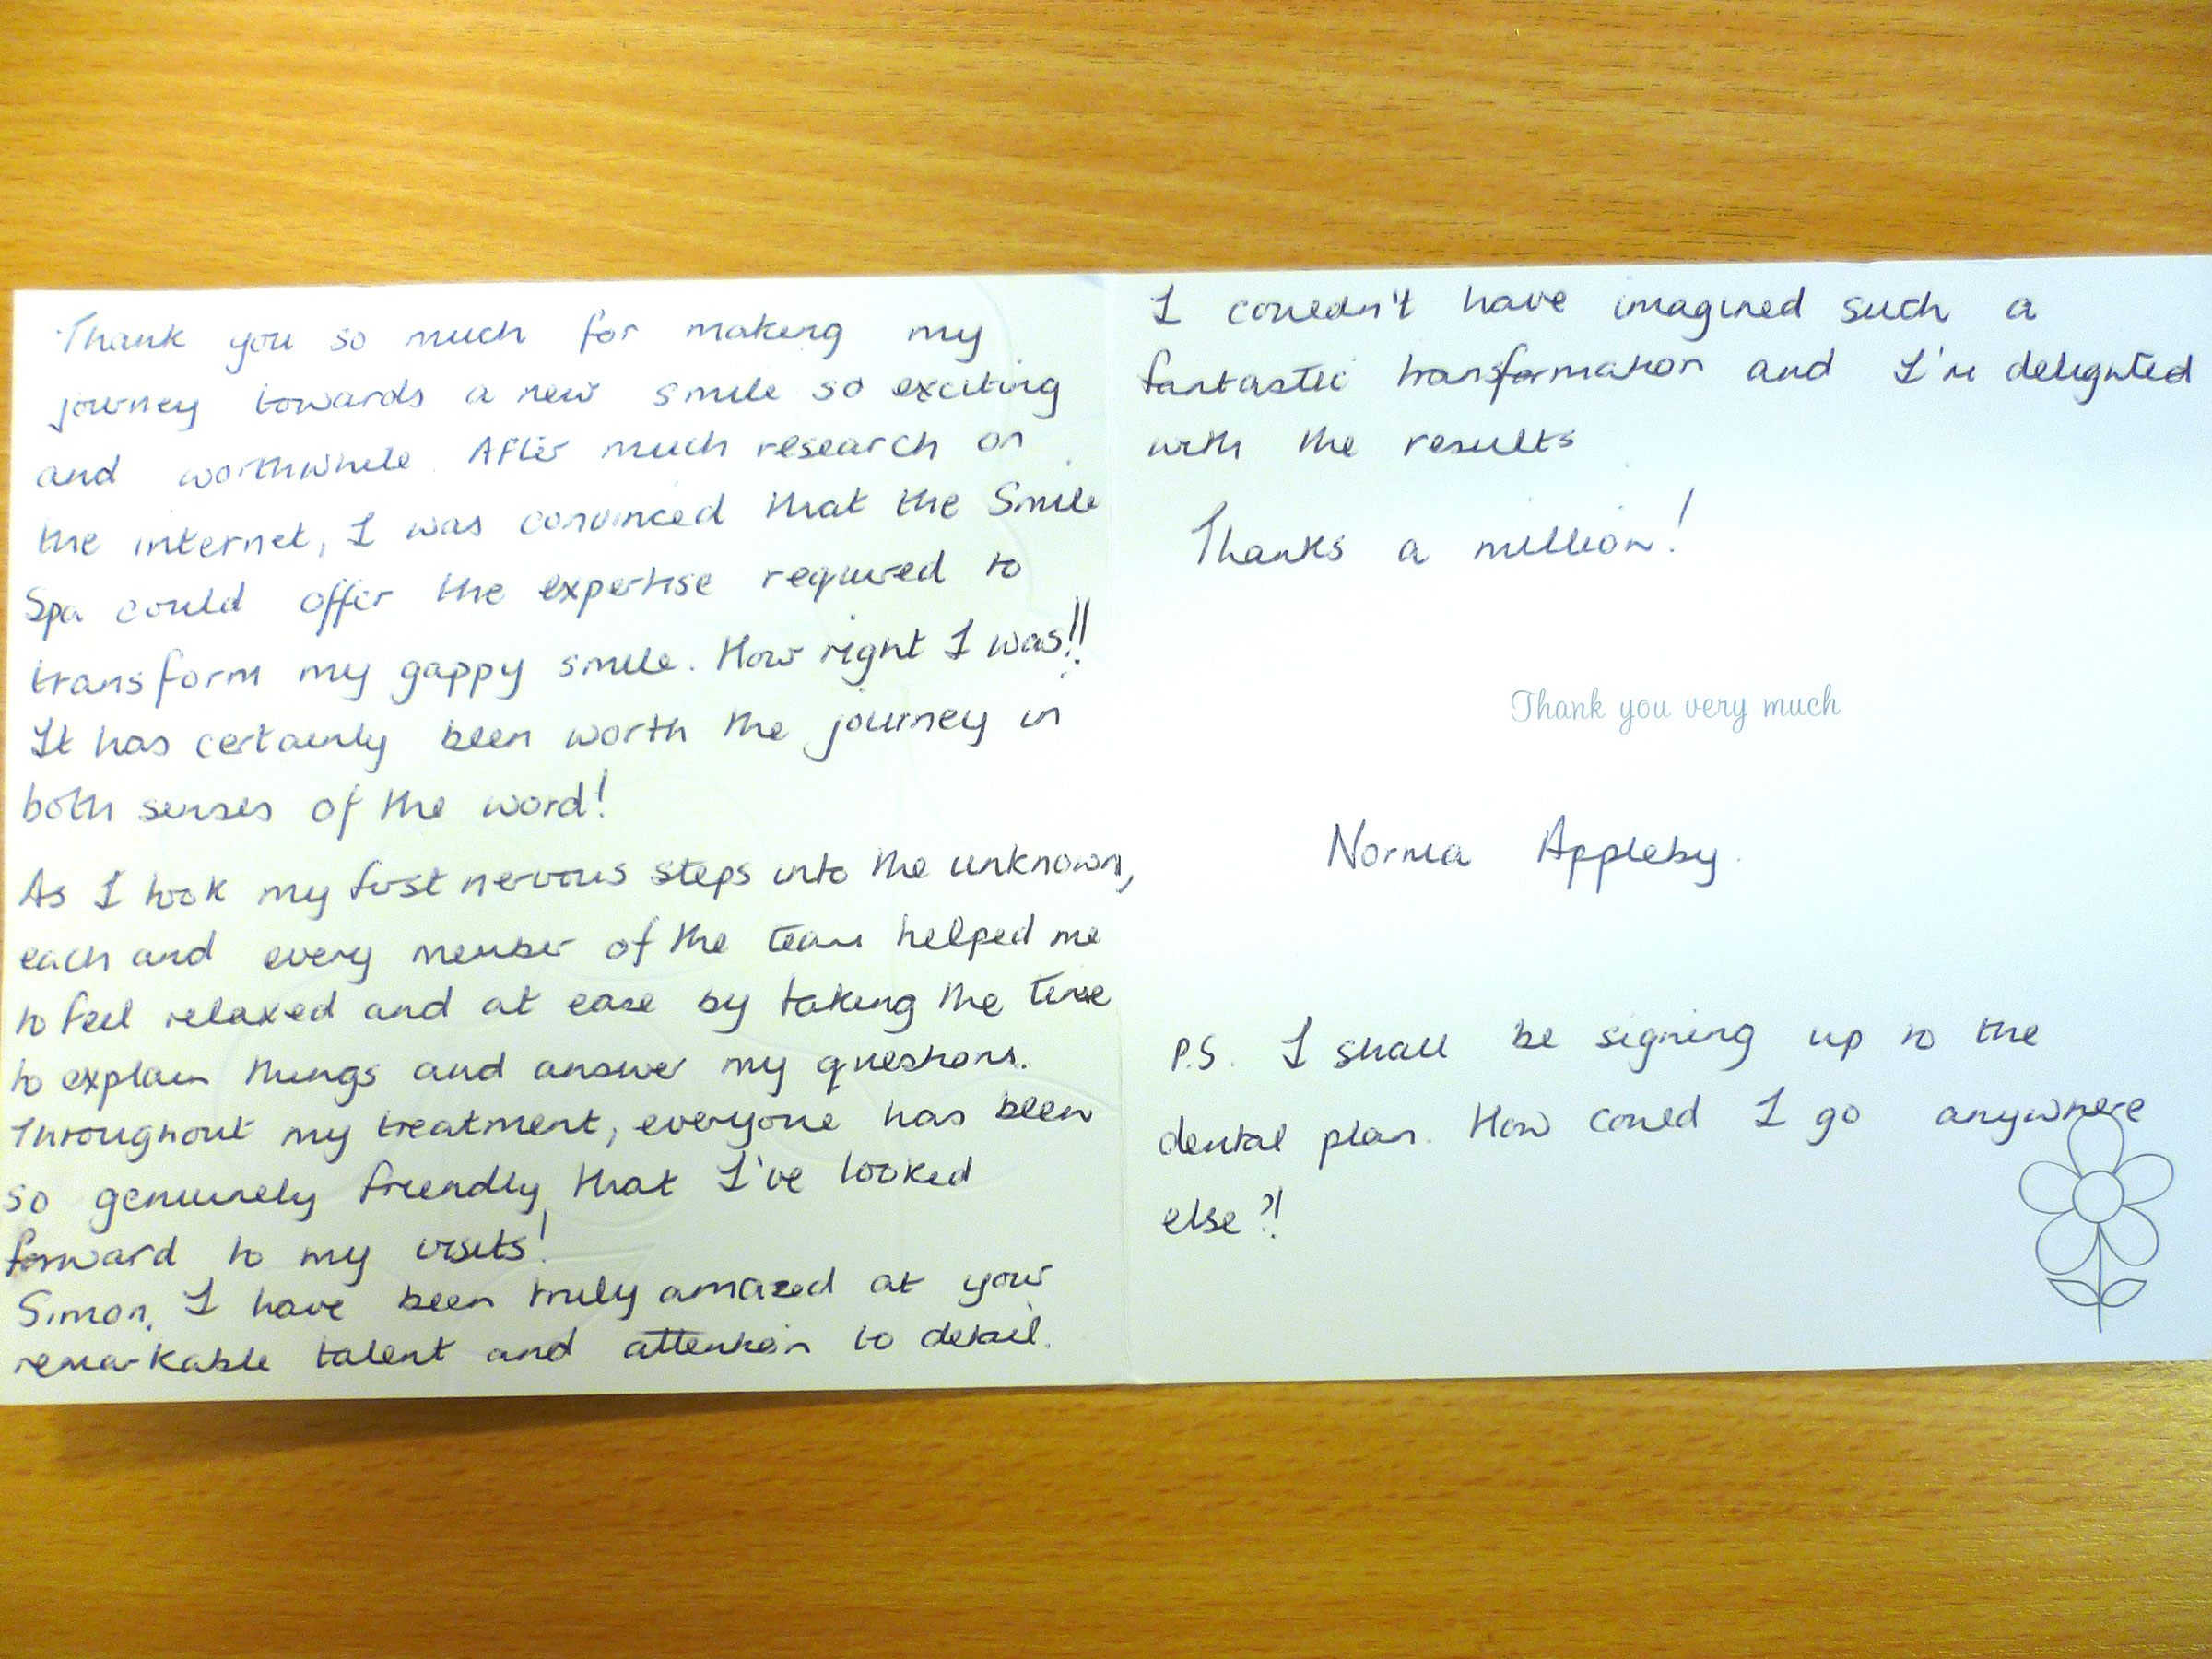 Thank you so much for making my
journey towards a new smile so exciting
and worthwhile. After much research on
the internet, I was convinced that the Smile
Spa could offer the expertise required to
transform my gappy smile. How right I was!!
It has certainly been worth the journey in
both senses of the word!
As I took my first nervous steps into the unknown,
each and every member of the team helped me
to feel relaxed and at ease by taking the time
to explain things and answer my questions.
Throughout my treatment, everyone has been
so genuinely friendly that I've looked
forward to my visits!
Simon, I have been truly amazed at your
remarkable talent and attention to detail.
I couldn't have imagined such a
fantastic transformation and I'm delighted
with the results
Thanks a million!
Thank you very much
Norma Appleby.
P.S. I shall be signing up to the
dental plan. How could I go anywhere
else?!